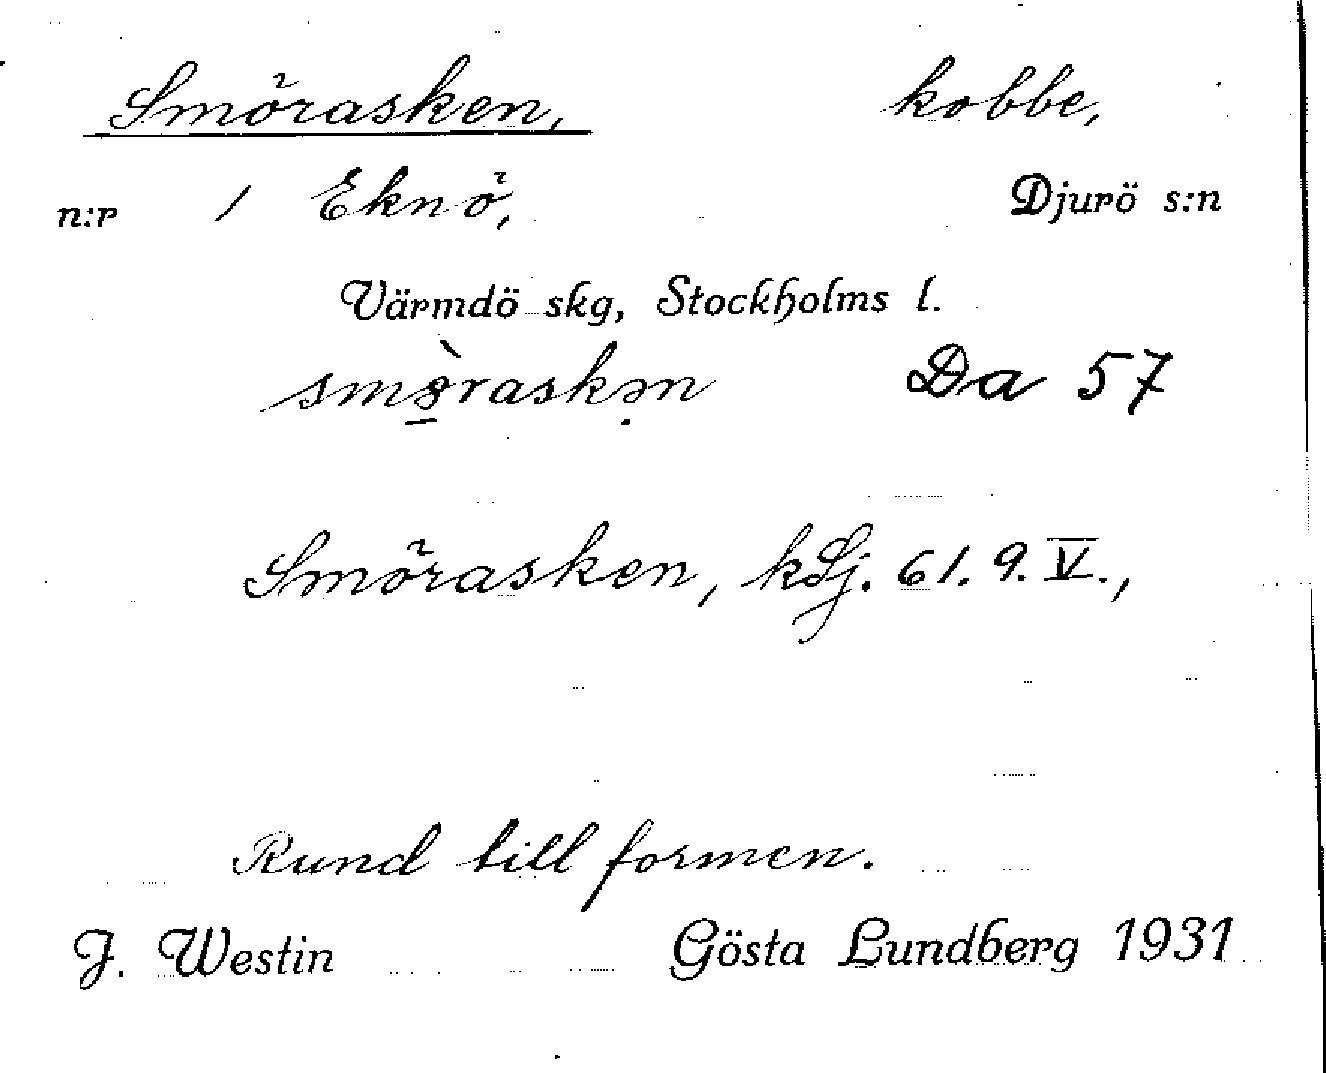 Smörasken, kobbe,
n:r 1 Eknö, Djurö s:n
Värmdö skg, Stockholms l.
smö̀raskən Da 57
Smörasken, kSj. 61. 9. V.,
Rund till formen.
J. Westin Gösta Lundberg 1931